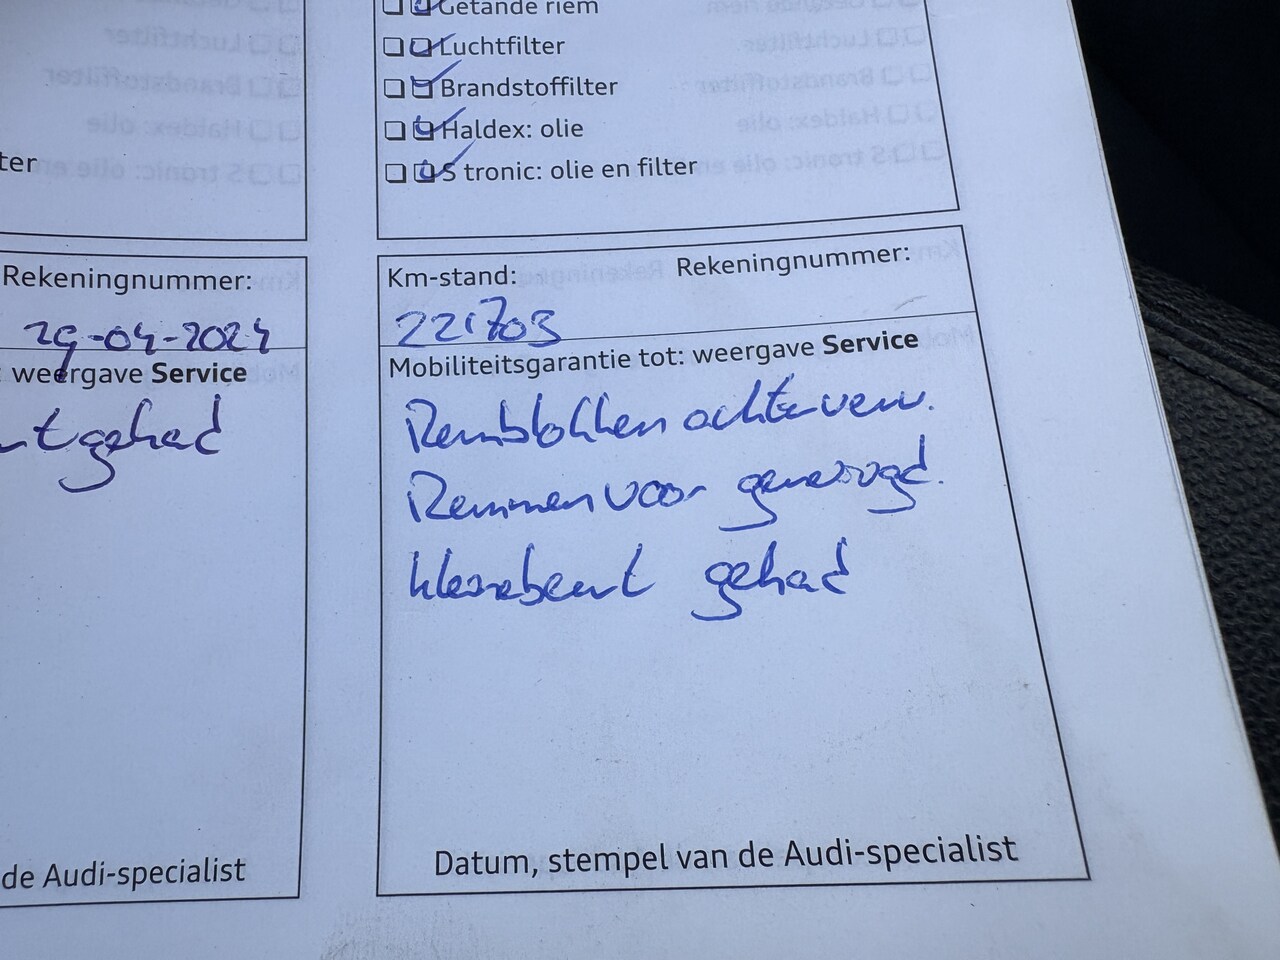 Getande riem
Luchtfilter
Brandstoffilter
Haldex: olie
S tronic: olie en filter
ter
Rekeningnummer:
29-04-2024
weergave Service
gehad
de Audi-specialist
Km-stand:
Rekeningnummer:
221703
Mobiliteitsgarantie tot: weergave Service
Remblokken achter verv.
Remmen voor gereinigd.
kleinebeurt gehad
Datum, stempel van de Audi-specialist